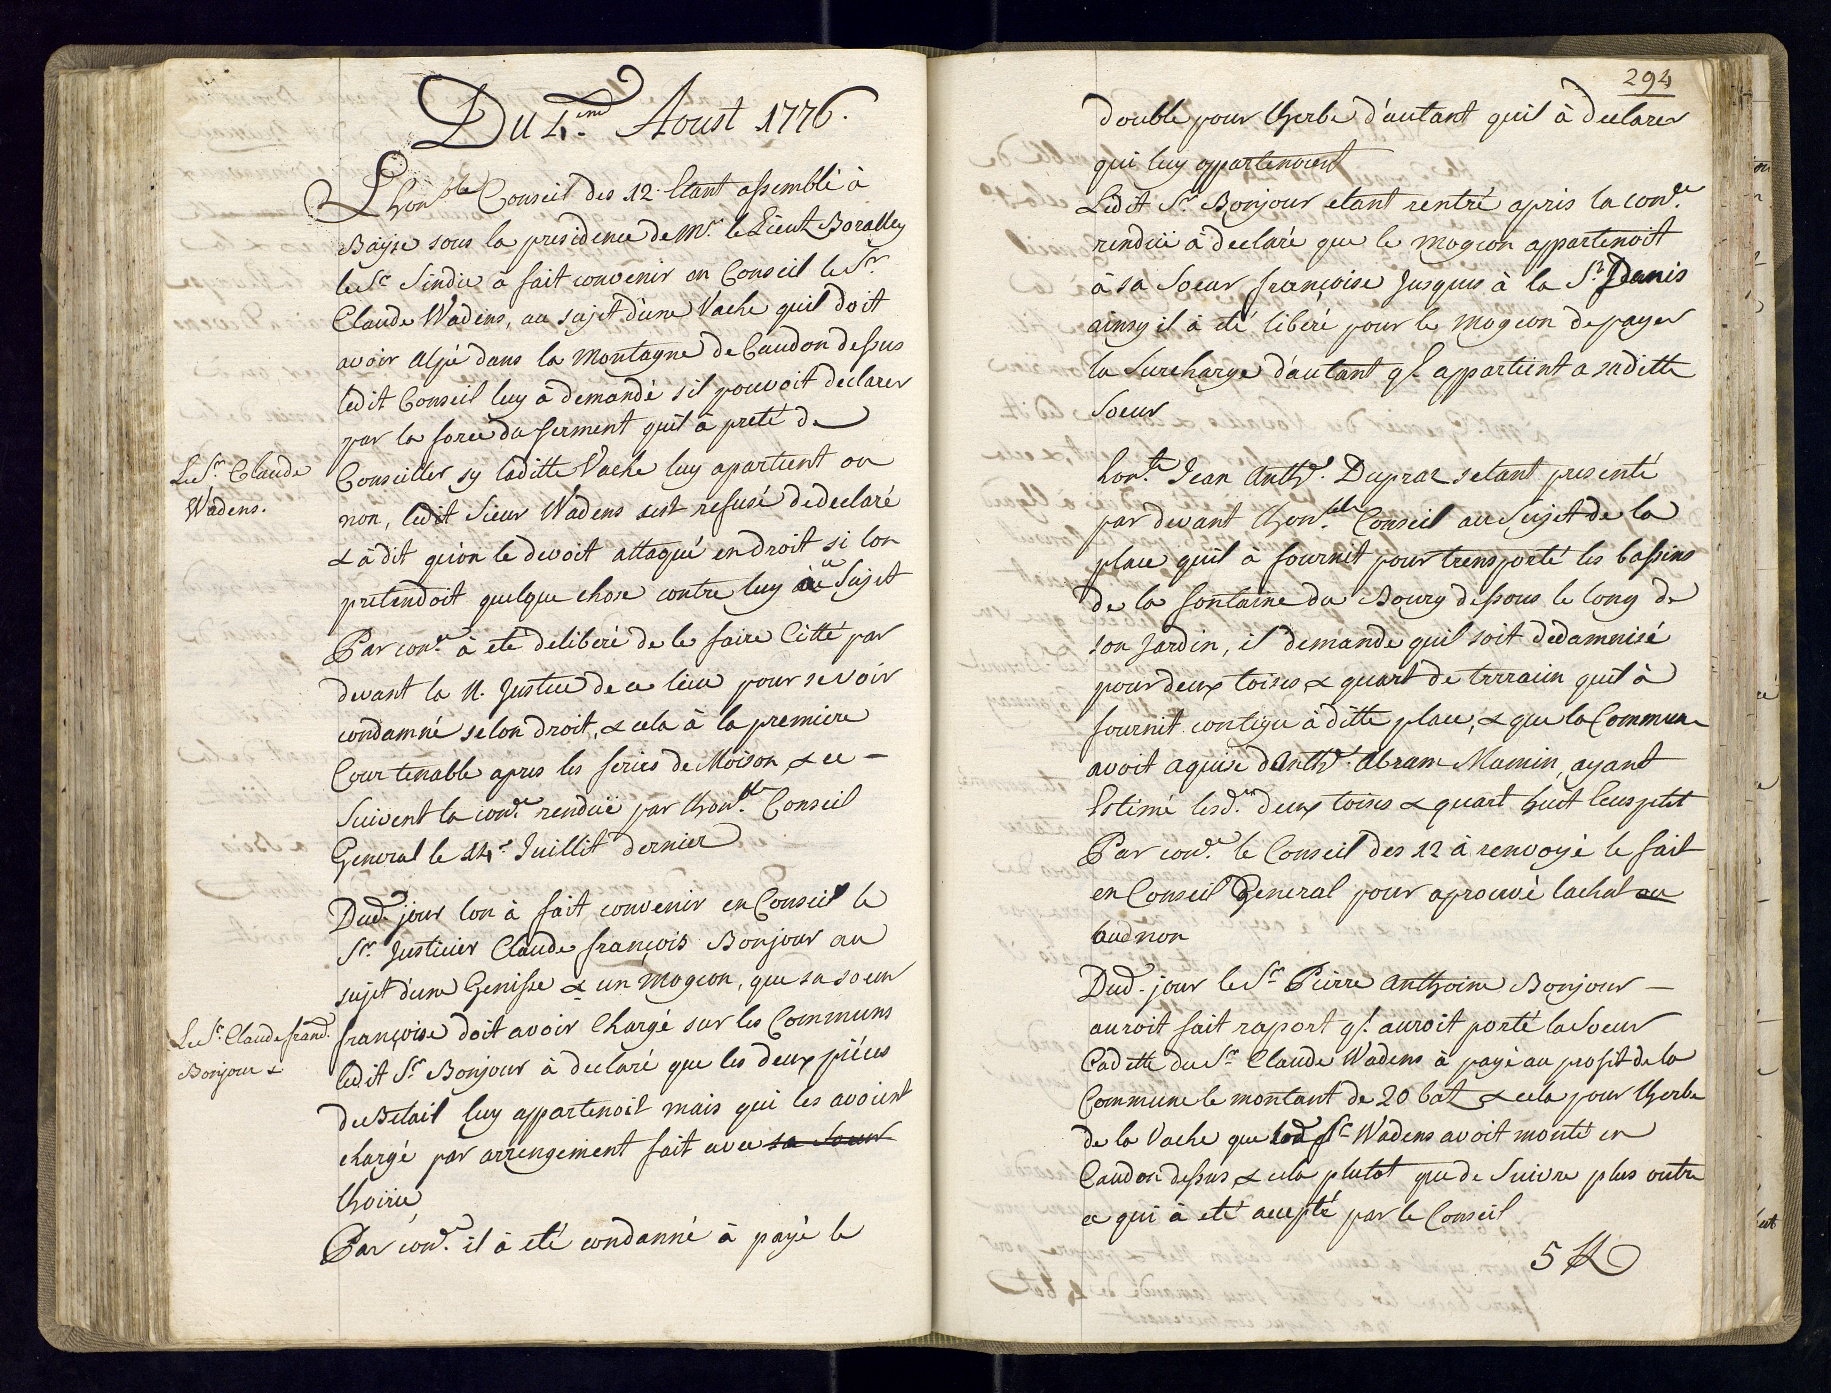 Du 4.me Aoust 1776.
Lhon.ble Conseil des 12. Etant assemblé à
Bayse sous la presidence de Mr. le Lieut Boralley
le Sr Sindic à fait convenir en Conseil le Sr.
Claude Wadens, au sujet d'une Vache quil doit
avoir Alpé dans la Montagne de Caudon dessus
ledit Conseil luy à demandé sil pouvoit declarer
par la force du serment quil à preté de
Le Sr. Claude
Wadens.
Conseiller sy laditte Vache luy apartient ou
non, ledit Sieur Wadens sest refusé de declaré
& à dit quon le devoit attaqué en droit si lon
pretendoit quelque chose contre luy au Sujet
Par con.ce à eté deliberé de le faire Citté par
devant la N. Justice de ce lieu pour se voir
condamné selon droit, & cela à la premiere
Cour tenable apres les feries de Moison & ce —
Suivent la con.ce renduë par lhon.ble Conseil
General le 14.e Juillit dernier
Dud. jour lon à fait convenir en Conseil le
Sr. Justicier Claude françois Bonjour au
sujet d'une Genisse & un Mogeon, que sa soeur
Le Sr. Claude frand.
Bonjour &
françoise doit avoir Chargé sur les Communs
ledit Sr. Bonjour à declaré que les deux piéces
de Betail luy appartenoit mais qui les avoient
chargé par arrengement fait avec sa soeur
lhoirie
Par con.ce il à eté condanné à payé le
294
double pour lherbe d'autant quil à declarer
qui luy appartenoient
Ledit Sr. Bonjour etant rentré apris la con.ce
renduë à declaré que le mogeon appartenoit
à sa Soeur françoise Jusques à la St. Denis
ainsy il à eté liberé pour le Mogeon de payer
la Surcharge d'autant ql. appartient a saditte
Soeur
hon.te Jean Anth.e Dupraz setant presenté
par devant lhon.ble Conseil au Sujet de la
place quil à fournit pour trensporté les bassins
de la fontaine du Bourg dessous le long de
son Jardin, il demande quil soit dedamnisé
pour deux toises & quart de terraiin quil à
fournit contigu à ditte place, & que la Commune
avoit aquise d'Anth.e Abram Mumin, ayant
Estimé lesd.tes deux toises & quart huit leus ptit
Par con.ce le Conseil des 12 à renvoyé le fait
en Conseil General pour aprouvé lachat ou
oud non
Dud. jour le Sr. Pierre Anthoine Bonjour —
auroit fait raport ql. auroit porté la Soeur
Cadette du Sr. Claude Wadens à payé au profit de la
Commune le montant de 20 bat & cela pour lherbe
de la Vache que led. Sr. Wadens avoit monté en
Caudon dessus & cela plutot que de Suivre plus outre
ce qui à eté accepté par le Conseil